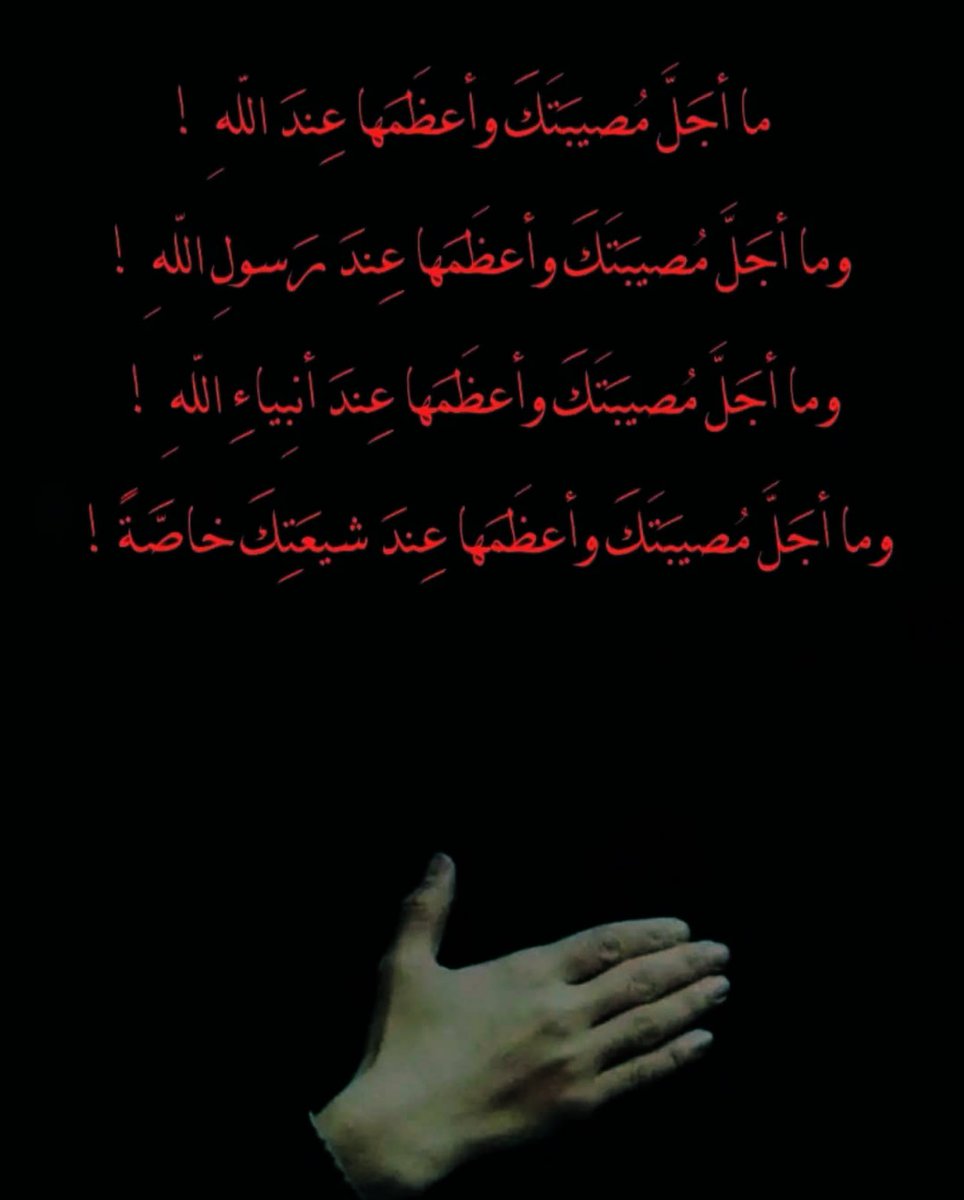 ما أجَلَّ مُصيبَتَكَ وأعظَمَها عِندَ اللّهِ !
وما أجَلَّ مُصيبَتَكَ وأعظَمَها عِندَ رَسولِ اللّهِ !
وما أجَلَّ مُصيبَتَكَ وأعظَمَها عِندَ أنبِياءِ اللّهِ !
وما أجَلَّ مُصيبَتَكَ وأعظَمَها عِندَ شيعَتِكَ خاصَّةً !